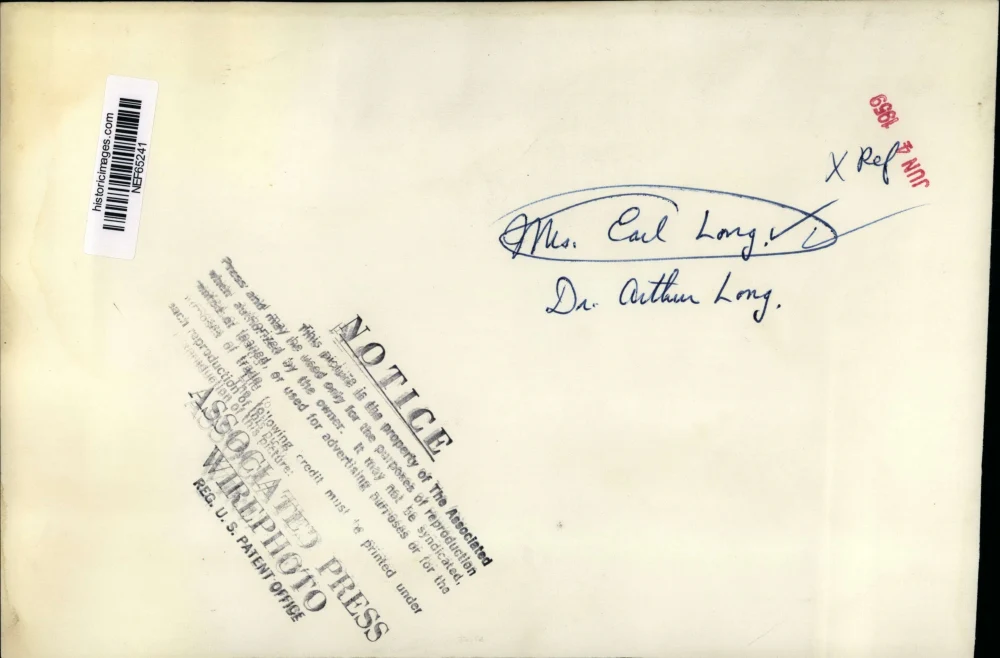 historicimages.com
NEF65241
JUN 4 1959
X Ref
Mrs. Earl Long.
Dr. Arthur Long.
NOTICE
This picture is the property of The Associated
Press and may be used only for the purposes of reproduction
when authorized by the owner. It may not be syndicated,
rented or loaned, or used for advertising purposes or for the
purposes of trade.
The following credit must be printed under
each reproduction of this picture:
ASSOCIATED PRESS
WIREPHOTO
REG. U. S. PATENT OFFICE